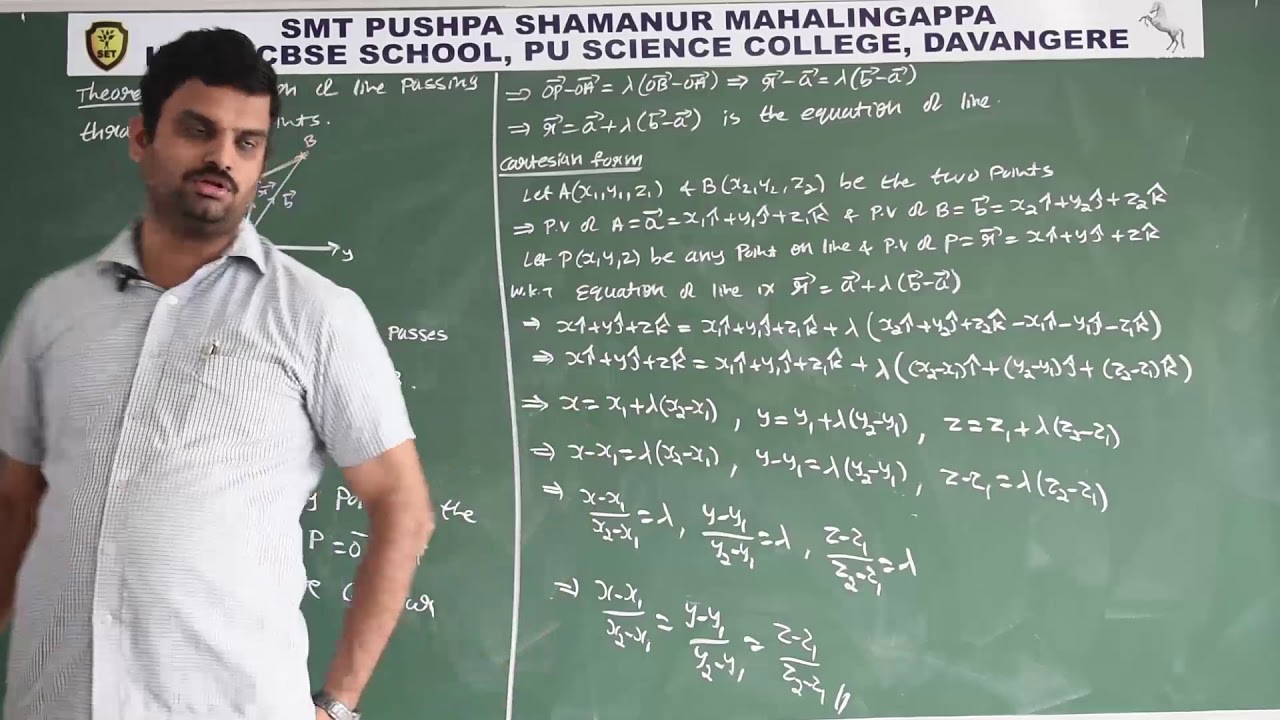 SMT PUSHPA SHAMANUR MAHALINGAPPA
CBSE SCHOOL, PU SCIENCE COLLEGE, DAVANGERE
SET
line Passing
B
r⃗
b⃗
y
Passes
B.
the
P =
⇒ OP⃗ - OA⃗ = λ(OB⃗ - OA⃗) ⇒ r⃗ - a⃗ = λ(b⃗ - a⃗)
⇒ r⃗ = a⃗ + λ(b⃗ - a⃗) is the equation of line.
Cartesian form
Let A(x₁, y₁, z₁) & B(x₂, y₂, z₂) be the two Points
⇒ P.V of A = a⃗ = x₁î + y₁ĵ + z₁k̂ & P.V of B = b⃗ = x₂î + y₂ĵ + z₂k̂
Let P(x, y, z) be any Point on line & P.V of P = r⃗ = xî + yĵ + zk̂
W.K.T Equation of line is r⃗ = a⃗ + λ(b⃗ - a⃗)
⇒ xî + yĵ + zk̂ = x₁î + y₁ĵ + z₁k̂ + λ(x₂î + y₂ĵ + z₂k̂ - x₁î - y₁ĵ - z₁k̂)
⇒ xî + yĵ + zk̂ = x₁î + y₁ĵ + z₁k̂ + λ((x₂-x₁)î + (y₂-y₁)ĵ + (z₂-z₁)k̂)
⇒ x = x₁ + λ(x₂-x₁), y = y₁ + λ(y₂-y₁), z = z₁ + λ(z₂-z₁)
⇒ x-x₁ = λ(x₂-x₁), y-y₁ = λ(y₂-y₁), z-z₁ = λ(z₂-z₁)
⇒ (x-x₁)/(x₂-x₁) = λ, (y-y₁)/(y₂-y₁) = λ, (z-z₁)/(z₂-z₁) = λ
⇒ (x-x₁)/(x₂-x₁) = (y-y₁)/(y₂-y₁) = (z-z₁)/(z₂-z₁) //